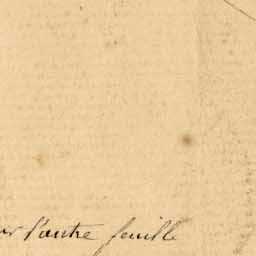 l'autre feuille